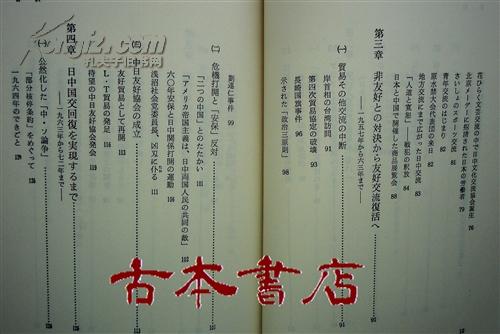 花ひらく文芸交流の中で日中文化交流協会誕生 76
北京メーデーに招請された日本の労働者 79
さいしょのスポーツ交流 81
青年交流のはじまり 82
原水禁大会代表団の来日 83
地方議会まで広がった日中交流 84
「人道と寛恕」――戦犯の釈放 85
日本と中国で開催した商品展覧会 88
第三章 非友好との対決から友好交流復活へ
――一九五七年から六二年まで―― 91
(一) 貿易その他交流の中断
岸首相の台湾訪問 91
第四次貿易協定の破壊 93
長崎国旗事件 96
示された「政治三原則」 98
劉連仁事件 99
(二) 危機打開と「安保」反対
「二つの中国」とのたたかい
「アメリカ帝国主義は、日中両国人民の共同の敵」
六〇年安保と日中関係打開の運動
浅沼社会党委員長、凶刃にたおる
中日友好協会の成立
友好貿易として再開
L・T貿易の発足
待望の中日友好協会が発会
第四章 日中国交回復を実現するまで
――一九六三年から七二年まで――
(一) 公然化した「中・ソ論争」
「部分核停条約」をめぐって
一九六四年のできごと
古本書店